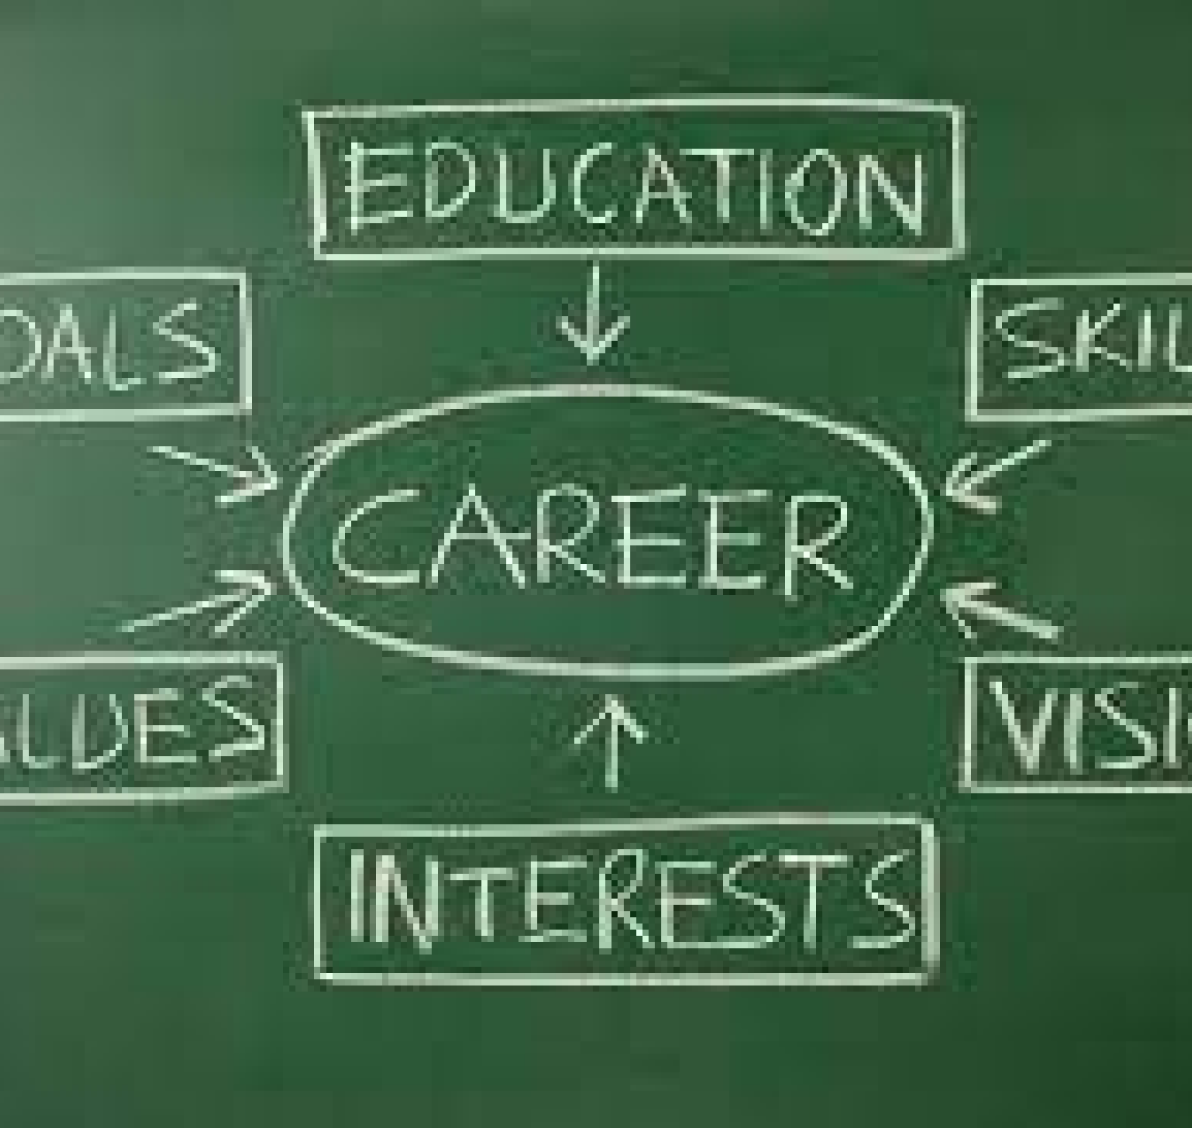 EDUCATION
OALS
SKIL
CAREER
ALUES
VISI
INTERESTS